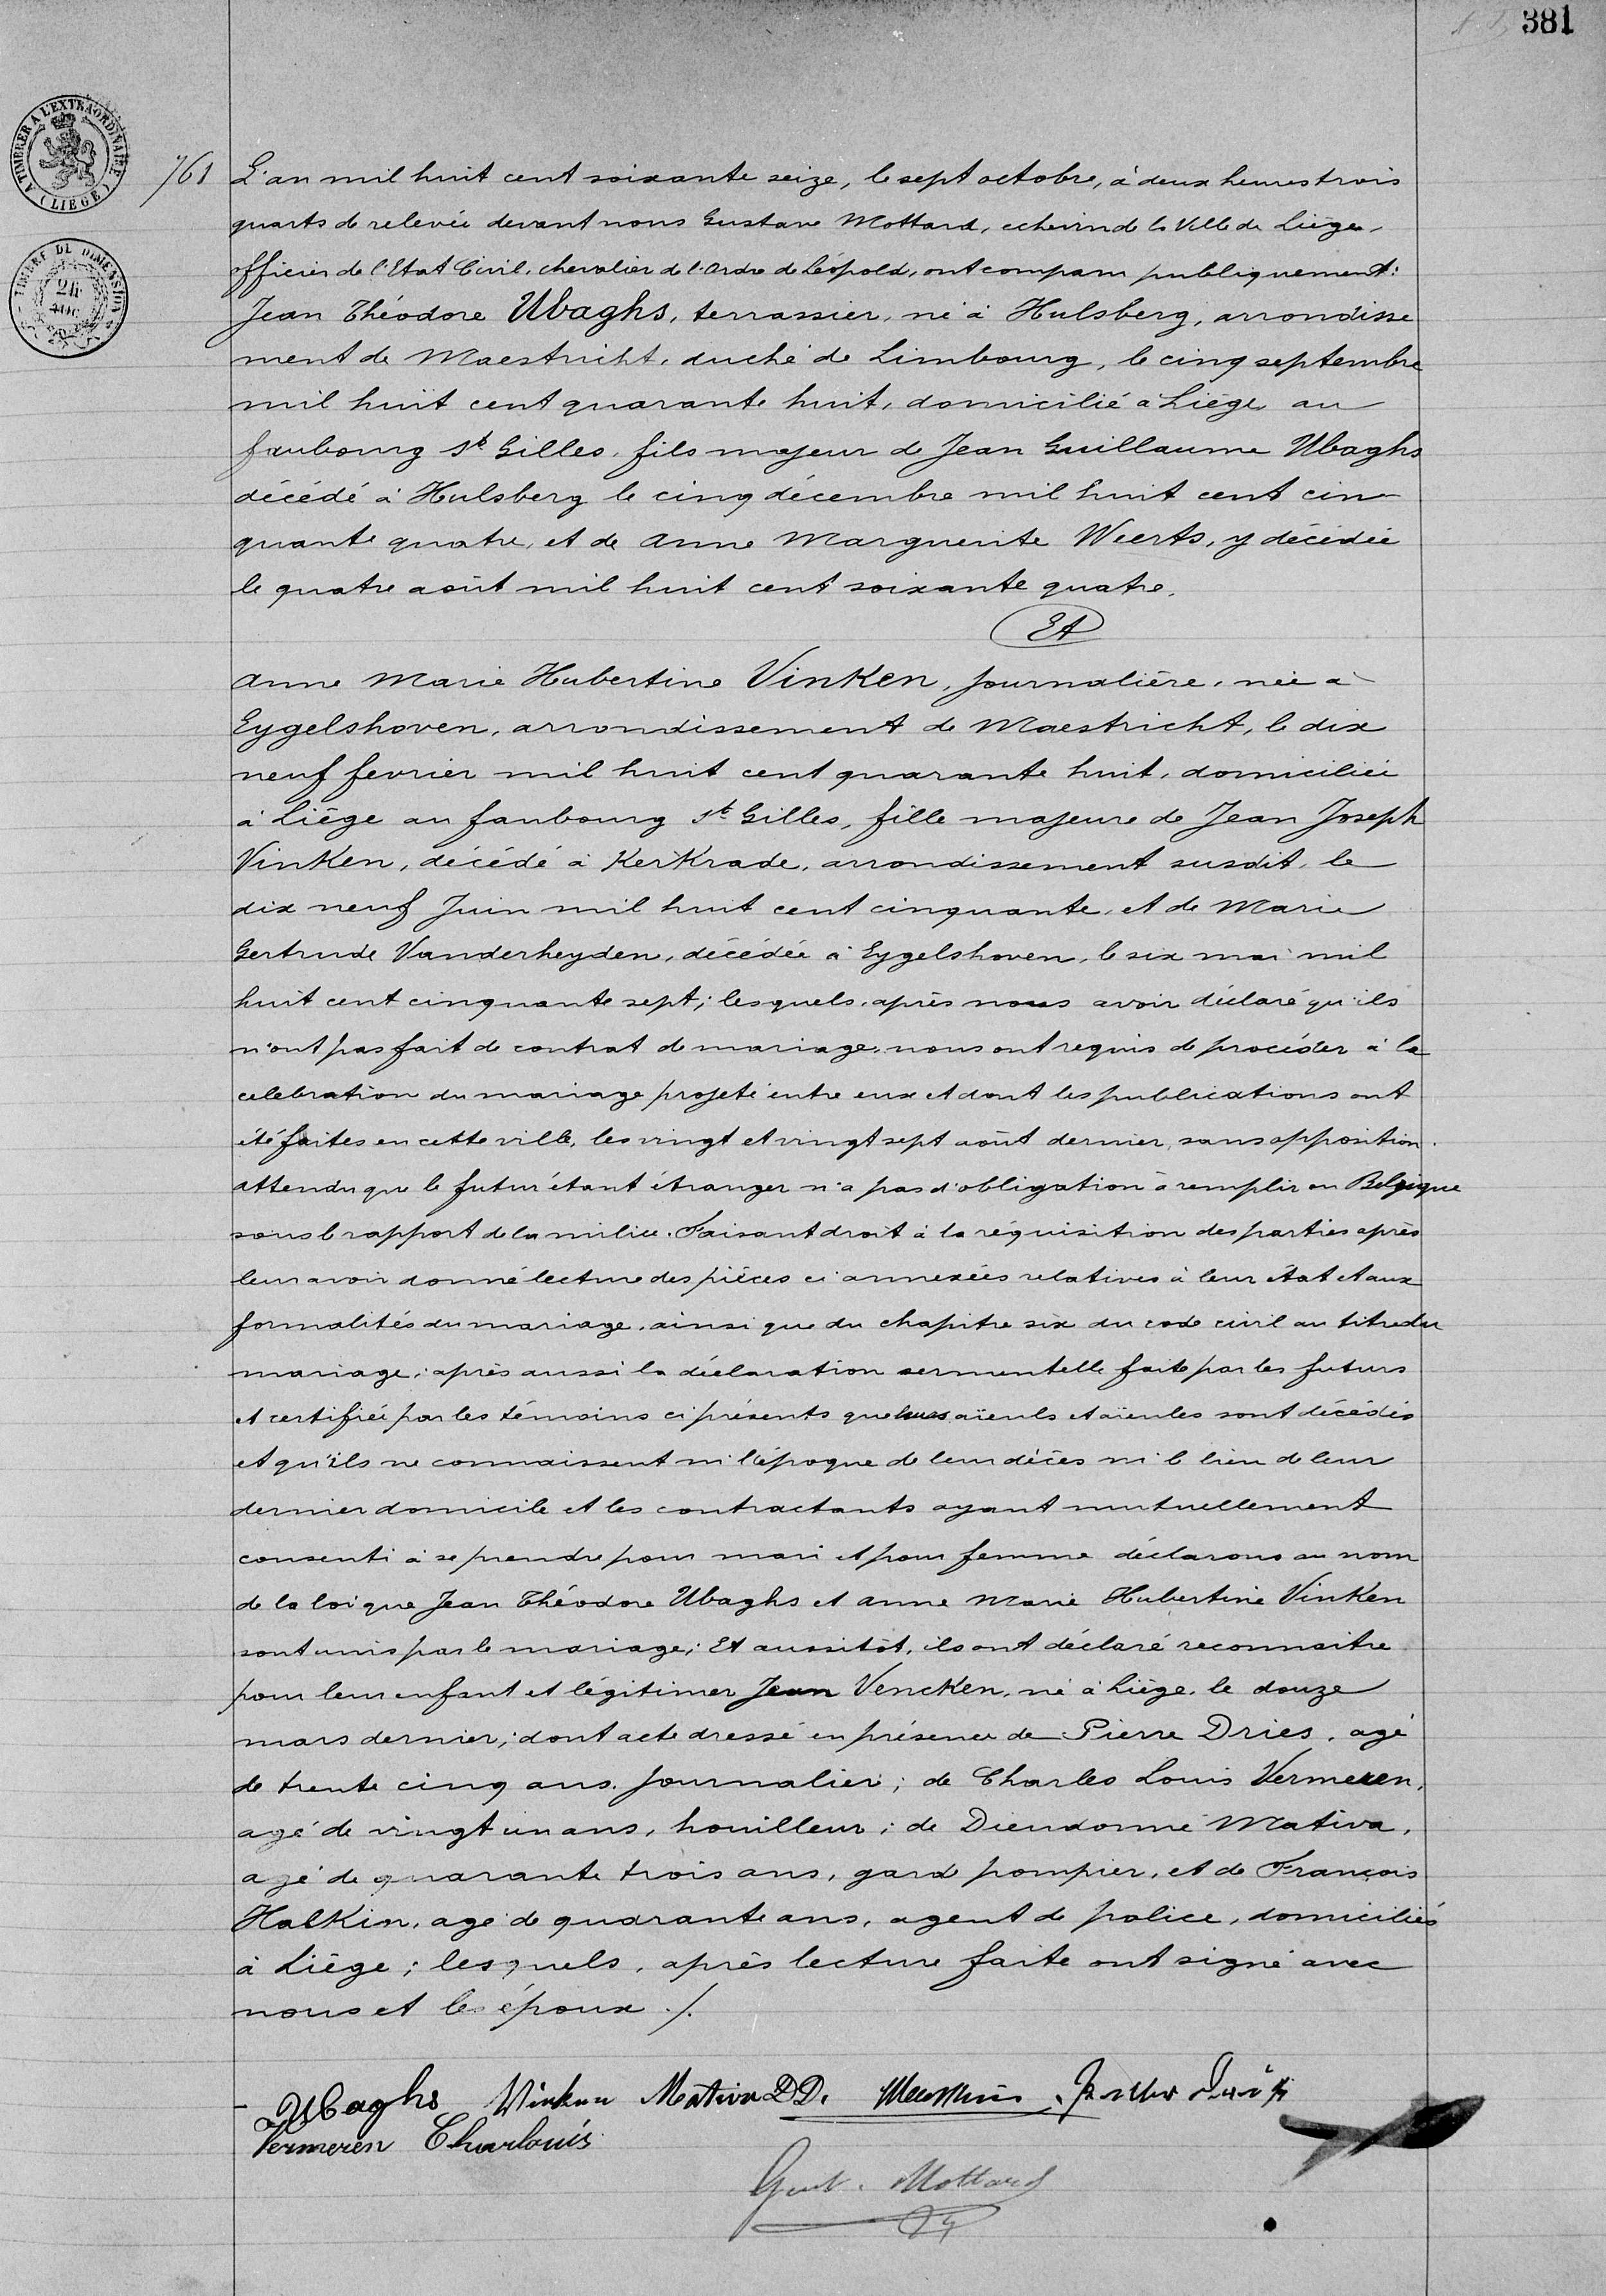 381
A TIMBRER A L'EXTRAORDINAIRE
(LIÈGE)
TIMBRE DE DIMENSION
24
761
L'an mil huit cent soixante seize, le sept octobre, à deux heures trois
quarts de relevée devant nous Gustave Mottard, echevin de la Ville de Liège,
officier de l'Etat Civil, chevalier de l'Ordre de Léopold, ont comparu publiquement:
Jean Théodore Ubaghs, terrassier, né à Hulsberg, arrondisse
ment de Maestricht, duché de Limbourg, le cinq septembre
mil huit cent quarante huit, domicilié à Liège au
faubourg St Gilles, fils majeur de Jean Guillaume Ubaghs
décédé à Hulsberg le cinq décembre mil huit cent cin
quante quatre, et de Anne Marguerite Weerts, y décédée
le quatre août mil huit cent soixante quatre.
Et
Anne Marie Hubertine Vinken, journalière, née à
Eygelshoven, arrondissement de Maestricht, le dix
neuf fevrier mil huit cent quarante huit, domiciliée
à Liège au faubourg St Gilles, fille majeure de Jean Joseph
Vinken, décédé à Kerkrade, arrondissement susdit, le
dix neuf Juin mil huit cent cinquante, et de Marie
Gertrude Vanderheyden, décédée à Eygelshoven, le six mai mil
huit cent cinquante sept; lesquels, après nous avoir déclaré qu'ils
n'ont pas fait de contrat de mariage, nous ont requis de procéder à la
celebration du mariage projeté entre eux et dont les publications ont
été faites en cette ville, les vingt et vingt sept août dernier, sans opposition.
attendu que le futur étant étranger n'a pas d'obligation à remplir en Belgique
sous le rapport de la milice. Faisant droit à la réquisition des parties après
leur avoir donné lecture des pièces ci annexées relatives à leur état et aux
formalités du mariage, ainsi que du chapitre six du code civil au titre du
mariage; après aussi la déclaration sermentelle faite par les futurs
et certifiée par les témoins ci présents que leurs aïeuls et aïeules sont décédés
et qu'ils ne connaissent ni l'époque de leur décès ni le lieu de leur
dernier domicile et les contractants ayant mutuellement
consenti à se prendre pour mari et pour femme déclarons au nom
de la loi que Jean Théodore Ubaghs et Anne Marie Hubertine Vinken
sont unis par le mariage; Et aussitôt, ils ont déclaré reconnaitre
pour leur enfant et légitimer Jean Vencken, né à Liège, le douze
mars dernier; dont acte dressé en présence de Pierre Dries, agé
de trente cinq ans, journalier; de Charles Louis Vermeren,
agé de vingt un ans, houilleur; de Dieudonné Mativa,
agé de quarante trois ans, garde pompier, et de François
Halkin, agé de quarante ans, agent de police, domiciliés
à Liège; lesquels, après lecture faite ont signé avec
nous et les époux ./.
Ubaghs Vinken Mativa DD.
Vermeren Charlouis
Gust. Mottard